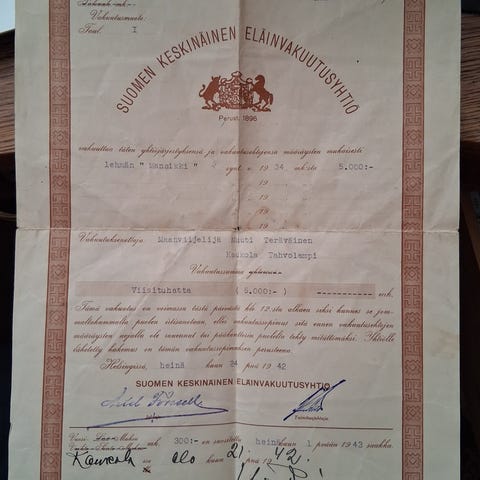 Vakuutusmuoto:
Taul. I
SUOMEN KESKINÄINEN ELÄINVAKUUTUSYHTIÖ
Perust. 1896
vakuuttaa täten yhtiöjärjestyksensä ja vakuutusehtojensa määräysten mukaisesti
lehmän "Mansikki" synt. v. 19 34 mk:sta 5.000:-
19
19
19
19
Vakuutuksenottaja Maanviljelijä Muuti Teräväinen
Kaukola Tahvolampi
Vakuutussumma yhteensä
Viisituhatta (5.000:-) mk.
Tämä vakuutus on voimassa tästä päivästä klo 12:sta alkaen siksi kunnes se jom-
maltakummalta puolen irtisanotaan, ellei vakuutussopimus sitä ennen vakuutusehtojen
määräysten nojalla ole rauennut tai päähenkisin puolelta tehty mitättömäksi. Yhtiölle
lähetetty hakemus on tämän vakuutussopimuksen perusteena.
Helsingissä, heinä kuun 24 p:nä 19 42
SUOMEN KESKINÄINEN ELÄINVAKUUTUSYHTIÖ
Toimitusjohtaja.
Vuosi- Maksu mk. 300:- on suoritettu heinäkuun 1 p:ään 1943 saakka.
Kaukola ssa elo kuun 21 p:nä 19 42.